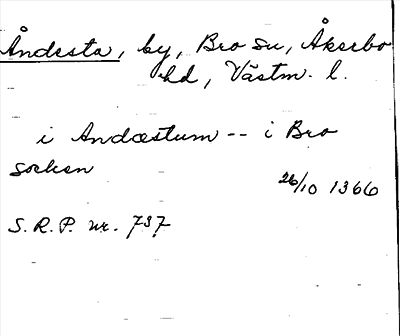 Åndesta, by, Bro sn, Åkerbo
hd, Västm. l.
i Andæstum -- i Bro
socken
26/10 1366
S.R.P. nr. 737